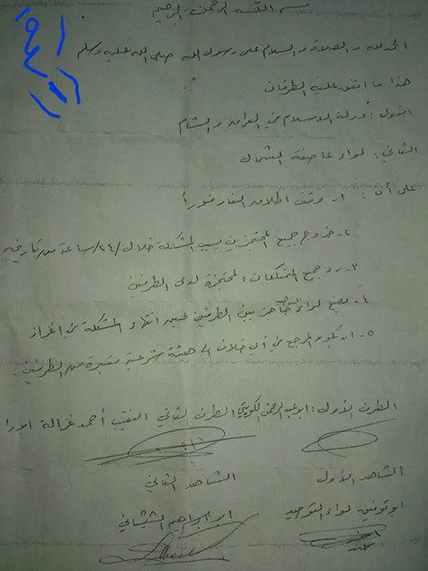 بسم الله الرحمن الرحيم
الحمد لله و الصلاة و السلام على رسول الله صلى الله عليه وسلم
هذا ما اتفق عليه الطرفان
الأول: دولة الاسلام في العراق و الشام
الثاني: لواء عاصفة الشمال
على أن: ١- وقف اطلاق النار فوراً
٢- خروج جميع المحتجزين بسبب المشكلة خلال /٢٤/ ساعة من تاريخه
٣- رد جميع الممتلكات المحتجزة لدى الطرفين
٤- يضع لواء التوحيد حاجز بين الطرفين لحين انتهاء المشكلة في اعزاز
٥- ان يكون المرجع في أي خلاف الى هيئة شرعية معتبرة من الطرفين.
الطرف الأول: ابو عبد الرحمن الكويتي الطرف الثاني النقيب أحمد غزالة ابو را
الشاهد الأول الشاهد الثاني
ابو توفيق لواء التوحيد ابو ابراهيم الشيشاني